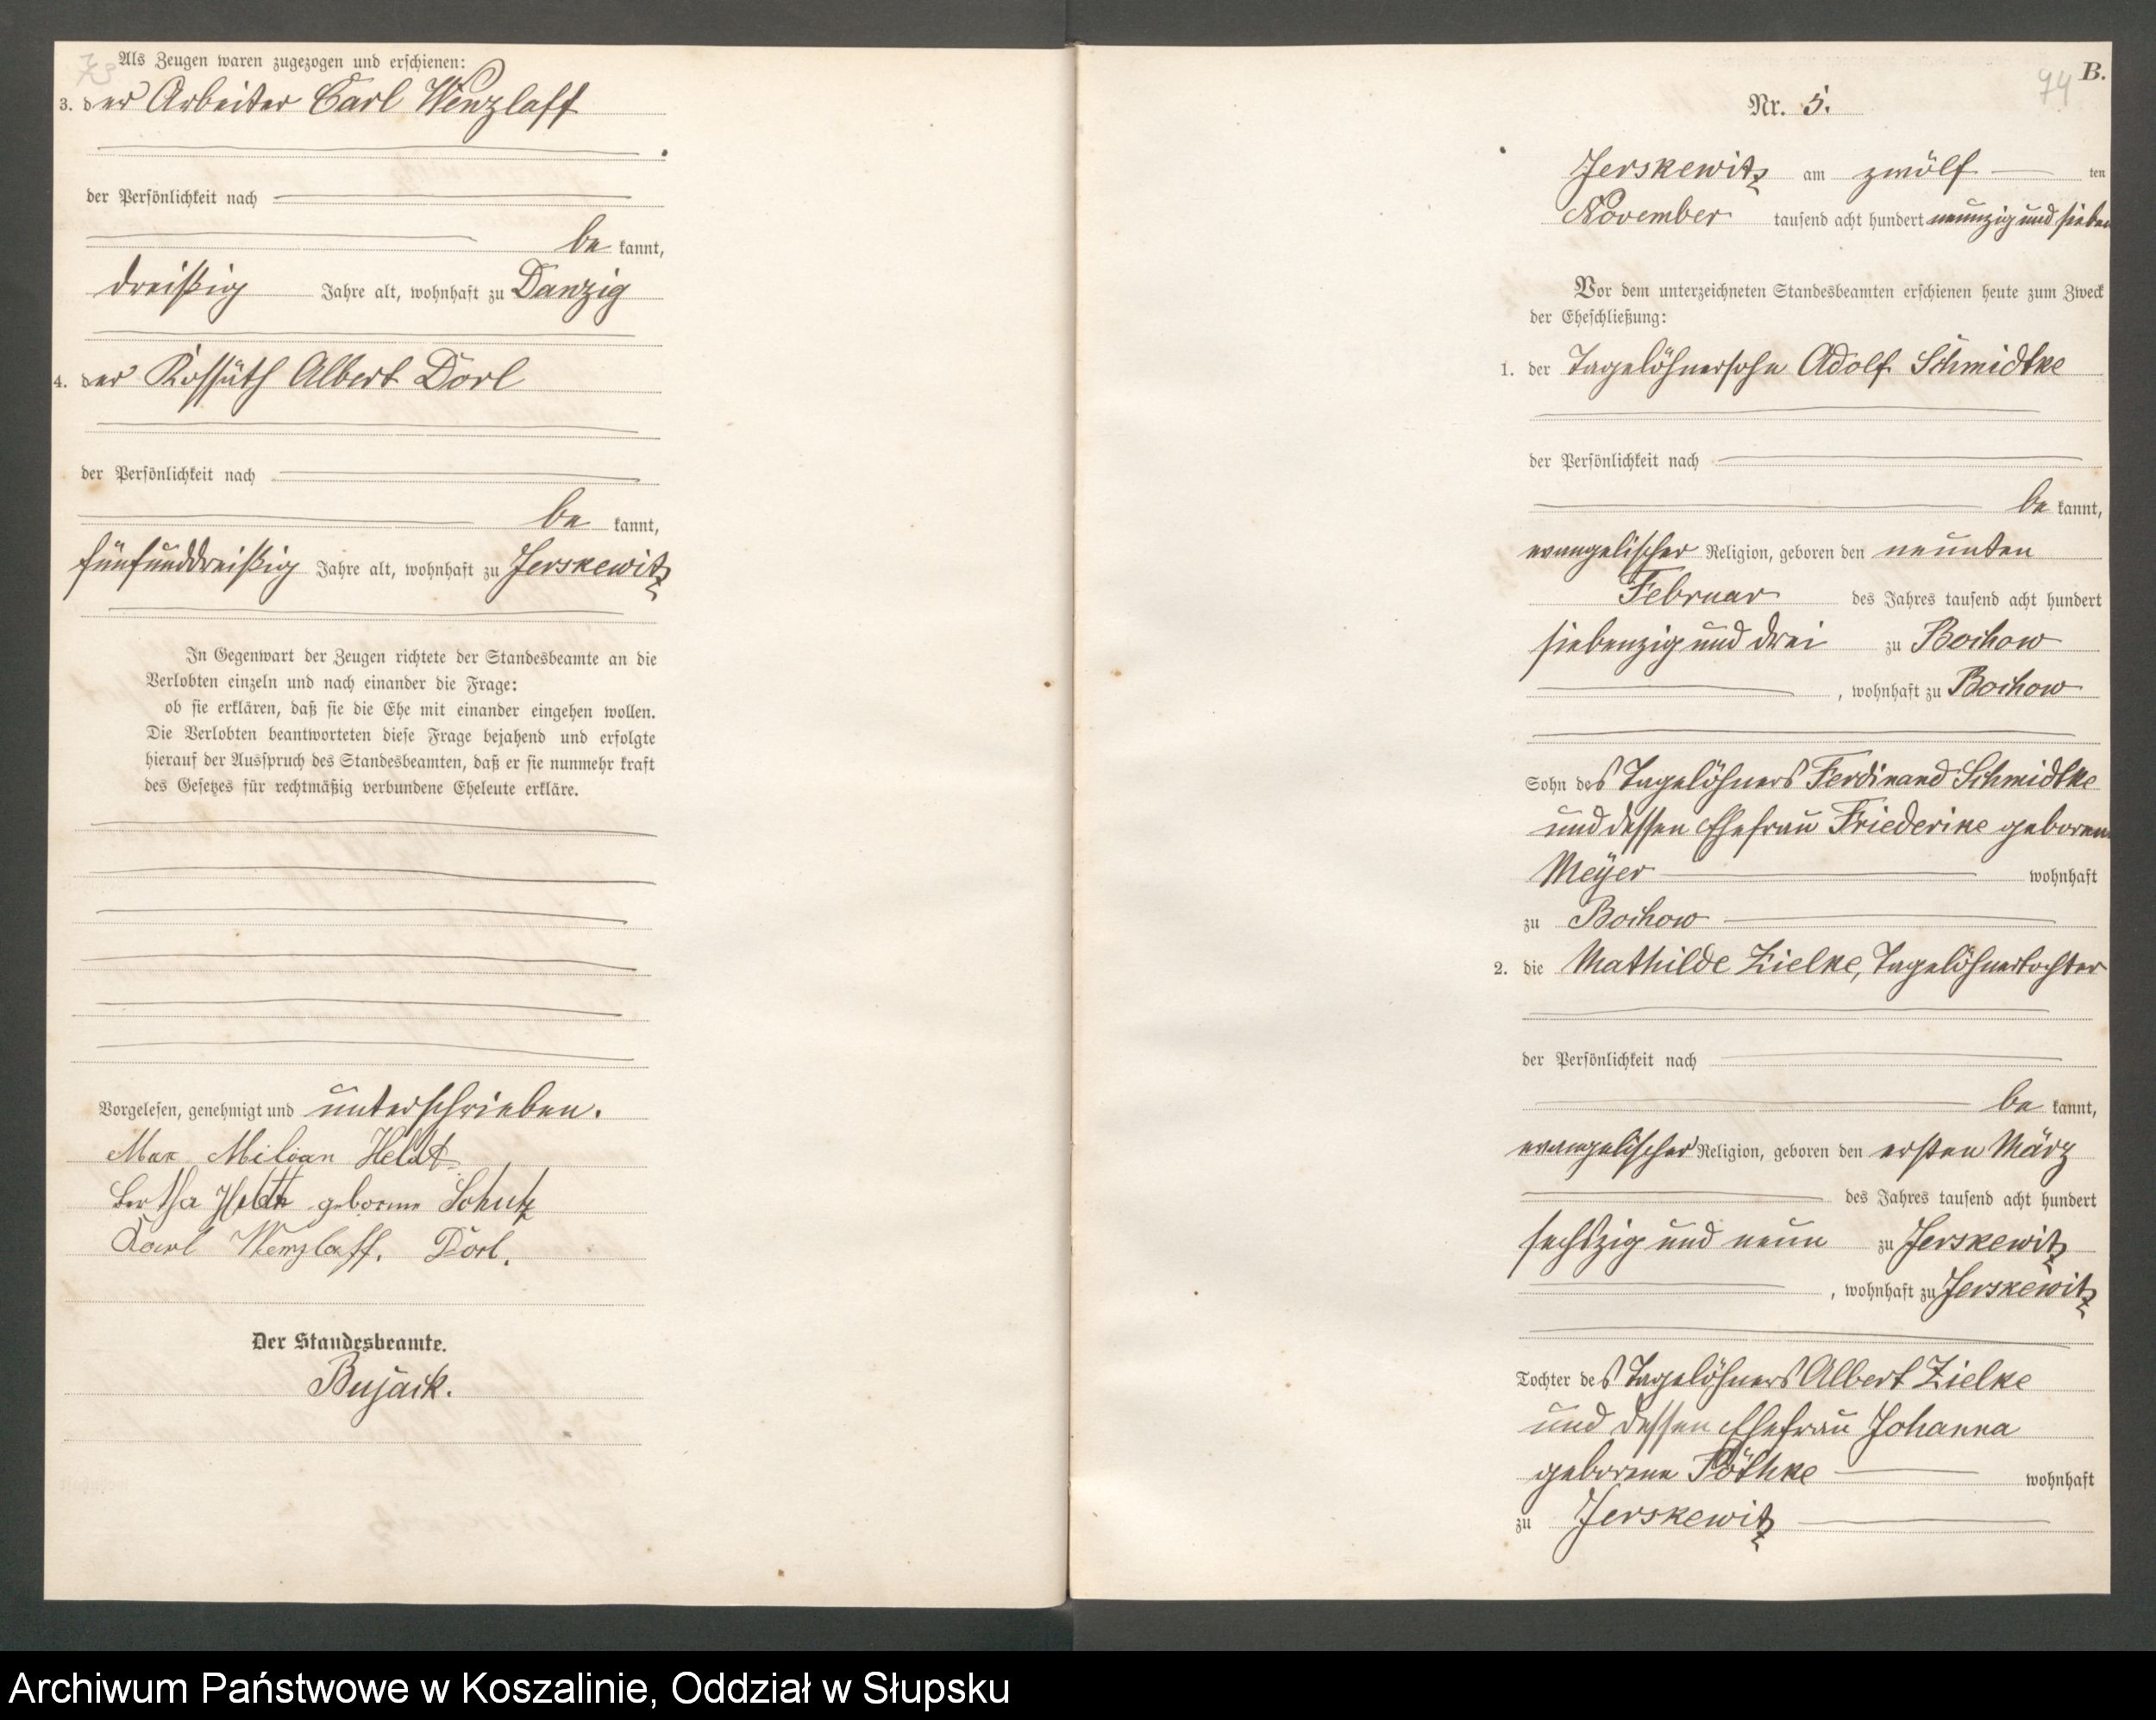 73
Als Zeugen waren zugezogen und erschienen:
3. der Arbeiter Carl Wenzlaff
der Persönlichkeit nach
be kannt,
dreißig Jahre alt, wohnhaft zu Danzig
4. der Kossäth Albert Dorl
der Persönlichkeit nach
be kannt,
fünfunddreißig Jahre alt, wohnhaft zu Jerskewitz
In Gegenwart der Zeugen richtete der Standesbeamte an die
Verlobten einzeln und nach einander die Frage:
ob sie erklären, daß sie die Ehe mit einander eingehen wollen.
Die Verlobten beantworteten diese Frage bejahend und erfolgte
hierauf der Ausspruch des Standesbeamten, daß er sie nunmehr kraft
des Gesetzes für rechtmäßig verbundene Eheleute erkläre.
Vorgelesen, genehmigt und unterschrieben.
Max Milian Heldt
Bertha Heldt geborene Schutz
Karl Wenzlaff. Dorl.
Der Standesbeamte.
Bujack.
74
B.
Nr. 5.
Jerskewitz am zwölf ten
November tausend acht hundert neunzig und sieben
Vor dem unterzeichneten Standesbeamten erschienen heute zum Zweck
der Eheschließung:
1. der Tagelöhnersohn Adolf Schmidtke
der Persönlichkeit nach
be kannt,
evangelischer Religion, geboren den neunten
Februar des Jahres tausend acht hundert
siebenzig und drei zu Bochow
, wohnhaft zu Bochow
Sohn des Tagelöhners Ferdinand Schmidtke
und dessen Ehefrau Friederike geborenen
Meÿer wohnhaft
zu Bochow
2. die Mathilde Zielke, Tagelöhnertochter
der Persönlichkeit nach
be kannt,
evangelischer Religion, geboren den ersten März
des Jahres tausend acht hundert
sechszig und neun zu Jerskewitz
, wohnhaft zu Jerskewitz
Tochter des Tagelöhners Albert Zielke
und dessen Ehefrau Johanna
geborene Pöthke wohnhaft
zu Jerskewitz
Archiwum Państwowe w Koszalinie, Oddział w Słupsku